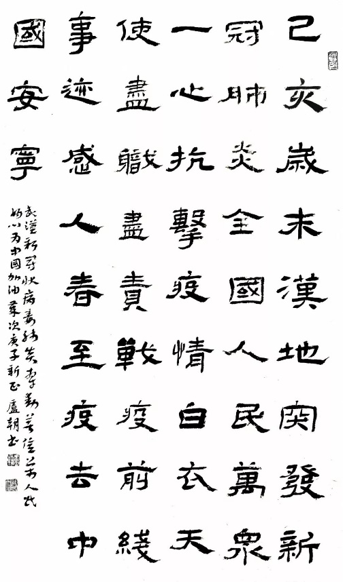 己亥歲末漢地突發新
冠肺炎全國人民萬衆
一心抗擊疫情白衣天
使盡職盡責戰疫前綫
事迹感人春至疫去中
國安寧
武漢新冠狀病毒肺炎牽動着億万人民
的心为中國加油 歲次庚子新正 盧朝书